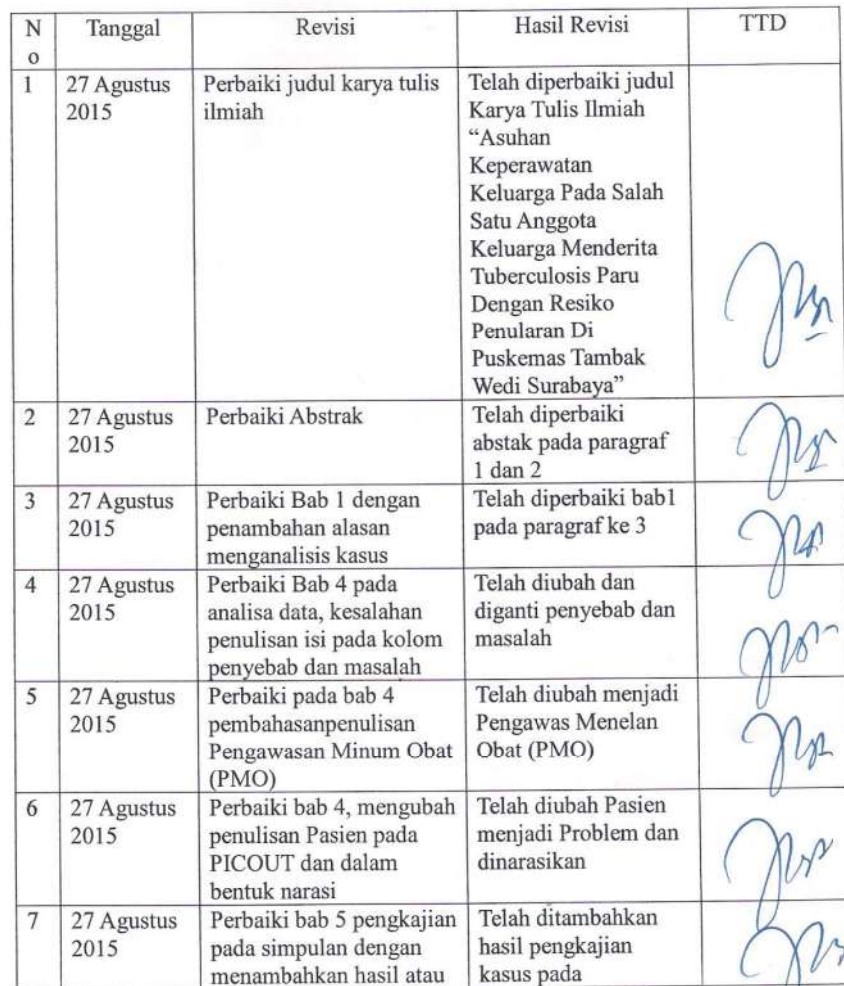 No Tanggal Revisi Hasil Revisi TTD
1 27 Agustus 2015
Perbaiki judul karya tulis
ilmiah
Telah diperbaiki judul
Karya Tulis Ilmiah
“Asuhan
Keperawatan
Keluarga Pada Salah
Satu Anggota
Keluarga Menderita
Tuberculosis Paru
Dengan Resiko
Penularan Di
Puskemas Tambak
Wedi Surabaya”
2 27 Agustus 2015
Perbaiki Abstrak
Telah diperbaiki
abstak pada paragraf
1 dan 2
3 27 Agustus 2015
Perbaiki Bab 1 dengan
penambahan alasan
menganalisis kasus
Telah diperbaiki bab1
pada paragraf ke 3
4 27 Agustus 2015
Perbaiki Bab 4 pada
analisa data, kesalahan
penulisan isi pada kolom
penyebab dan masalah
Telah diubah dan
diganti penyebab dan
masalah
5 27 Agustus 2015
Perbaiki pada bab 4
pembahasanpenulisan
Pengawasan Minum Obat
(PMO)
Telah diubah menjadi
Pengawas Menelan
Obat (PMO)
6 27 Agustus 2015
Perbaiki bab 4, mengubah
penulisan Pasien pada
PICOUT dan dalam
bentuk narasi
Telah diubah Pasien
menjadi Problem dan
dinarasikan
7 27 Agustus 2015
Perbaiki bab 5 pengkajian
pada simpulan dengan
menambahkan hasil atau
Telah ditambahkan
hasil pengkajian
kasus pada